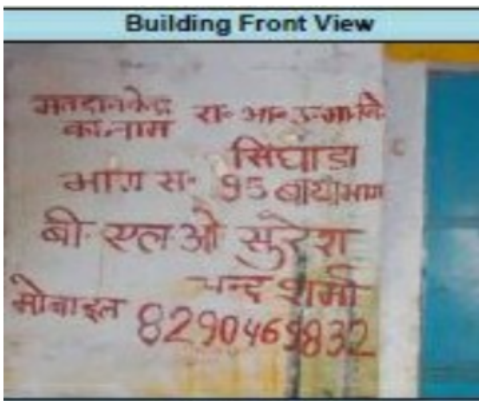 Building Front View
मतदान केन्द्र
का नाम रा॰ आ॰ उ॰ मा॰ वि॰
सिंघाडा
भाग स॰ 95 बायाँ भाग
बी॰ एल॰ ओ सुरेश
चन्द शर्मा
मोबाइल 8290469832